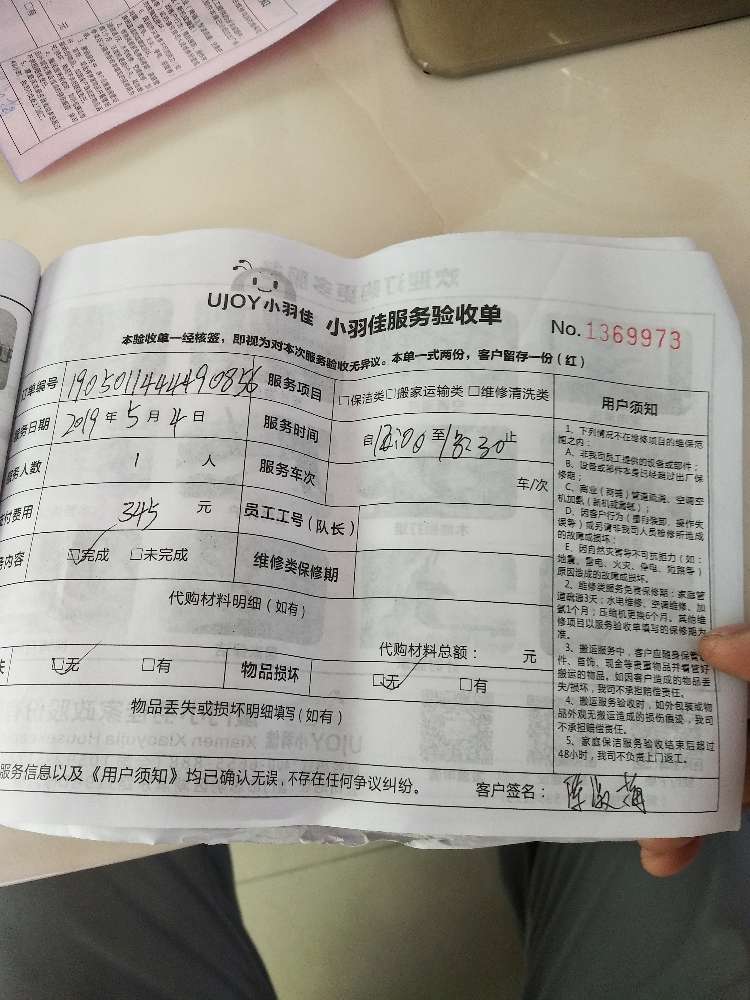 UJOY小羽佳 小羽佳服务验收单 No.1369973
本验收单一经核签，即视为对本次服务验收无异议。本单一式两份，客户留存一份（红）
订单编号 1905011444490856 服务项目 □保洁类□搬家运输类 □维修清洗类 用户须知
服务日期 2019年5月4日 服务时间 自 至18:30止
服务人数 1 人 服务车次 车/次
应付费用 345 元 员工工号（队长）
服务内容 ☑完成 □未完成 维修类保修期
代购材料明细（如有）
代购材料总额： 元
失 ☑无 □有 物品损坏 ☑无 □有
物品丢失或损坏明细填写（如有）
服务信息以及《用户须知》均已确认无误，不存在任何争议纠纷。 客户签名：陈淑梅
1、下列情况不在维修项目的维保范
围之内：
A、非我司员工提供的设备或部件；
B、设备或部件本身已经超过出厂保
修期；
C、商业（商铺）管道疏通、空调空
机加氨（新机或漏氨）；
D、因客户行为（擅自拆卸、操作失
误等）或另请非我司人员检修所造成
的故障或损坏；
E、因自然灾害等不可抗拒力（如：
地震、雷电、火灾、停电、短路等）
原因造成的故障或损坏。
2、维修类服务免费保修期：家庭管
道疏通3天；水电维修、空调维修、加
氨1个月；压缩机更换6个月。其他维
修项目以服务验收单填写的保修期为
准。
3、搬运服务中，客户应随身保管证
件、首饰、现金等贵重物品并看管好
搬运的物品。如因客户造成的物品丢
失/损坏，我司不承担赔偿责任。
4、搬运服务验收时，如外包装或物
品外观无搬运造成的损伤痕迹，我司
不承担赔偿责任。
5、家庭保洁服务验收结束后超过
48小时，我司不负责上门返工。